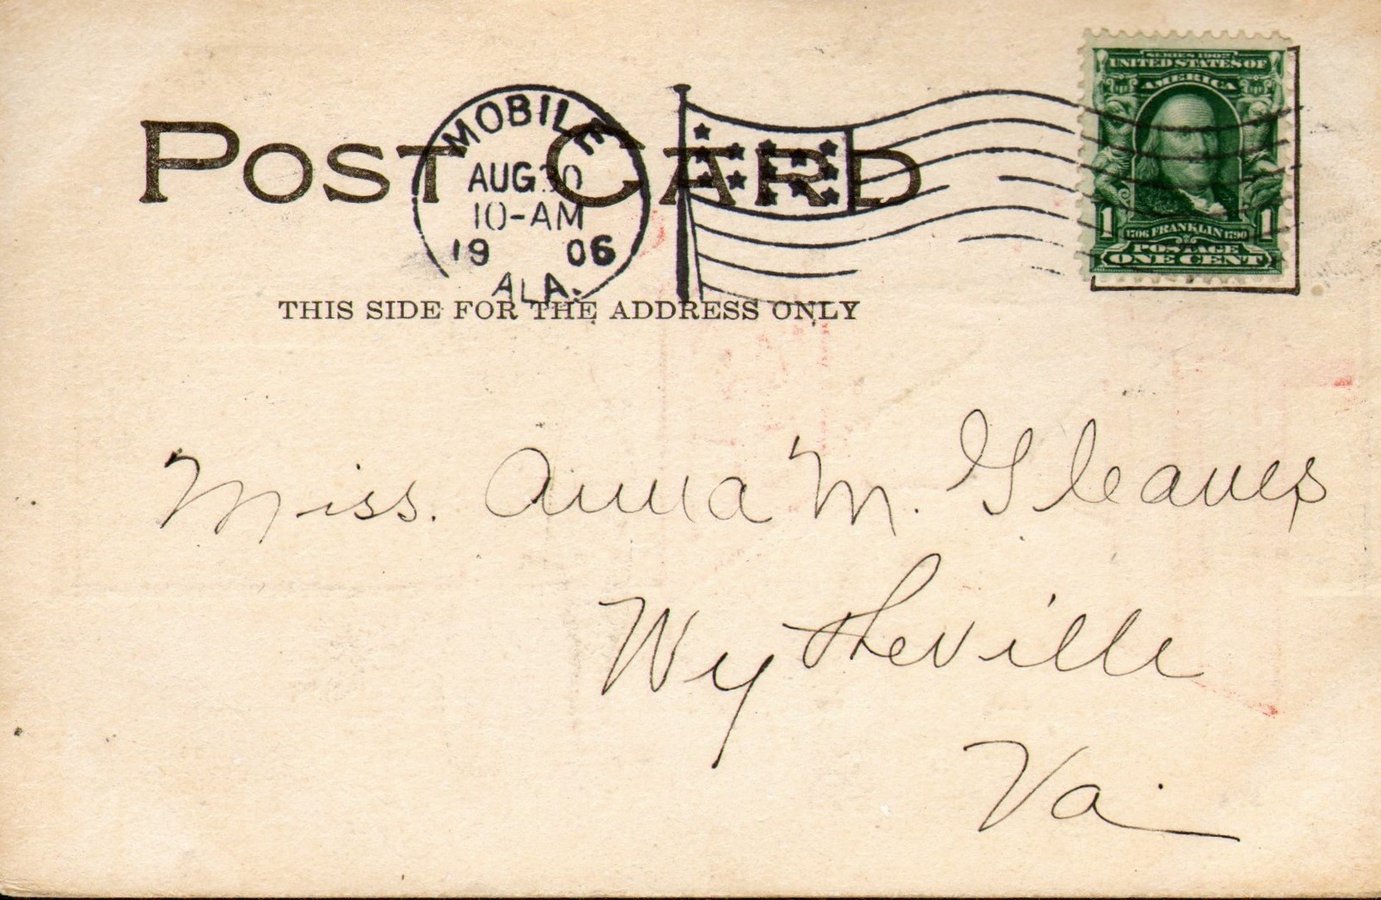 POST CARD
MOBILE
AUG 30
10-AM
1906
ALA.
SERIES 1902
UNITED STATES OF
AMERICA
1 1706 FRANKLIN 1790 1
POSTAGE
ONE CENT
THIS SIDE FOR THE ADDRESS ONLY
Miss. Anna M. Gleaves
Wytheville
Va.